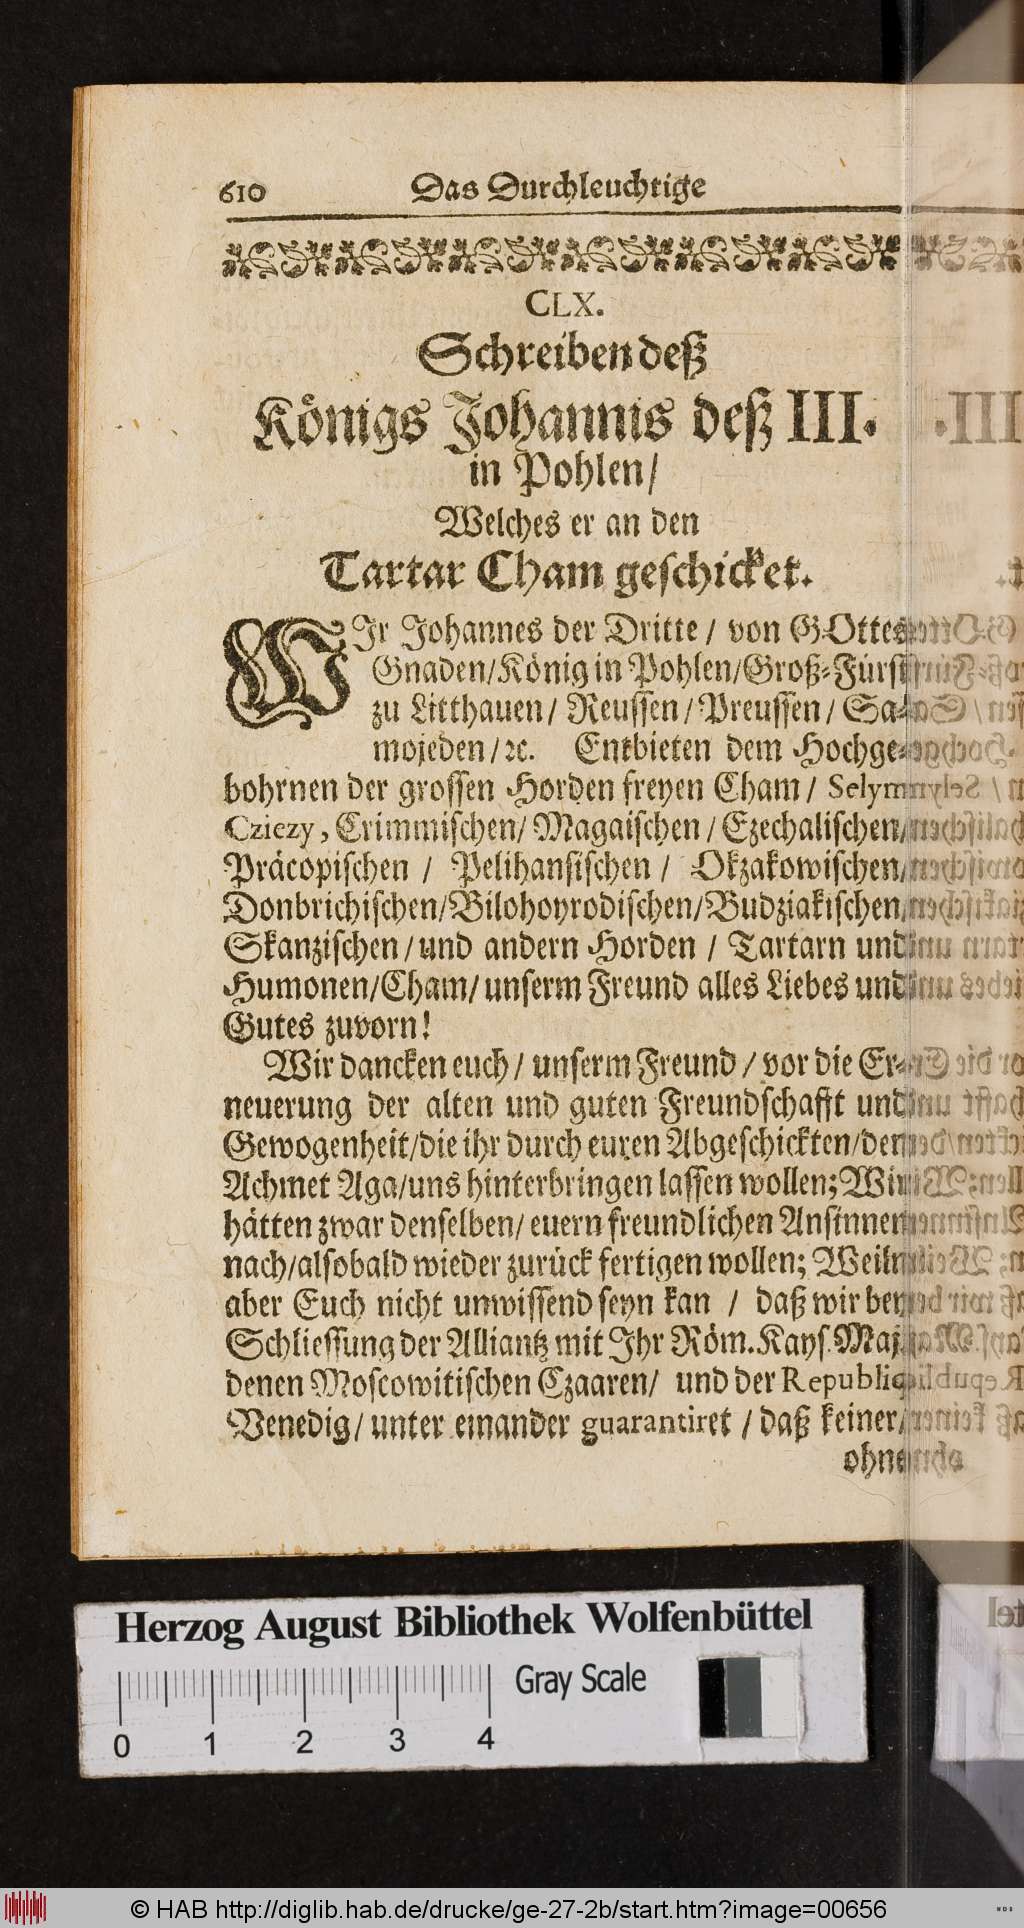 610 Das Durchleuchtige
CLX.
Schreiben deß
Königs Johannis deß III.
in Pohlen/
Welches er an den
Tartar Cham geschicket.
WJr Johannes der Dritte / von GOttes
Gnaden/König in Pohlen/Groß-Fürst
zu Litthauen/ Reussen/Preussen/ Sa-
mojeden/ꝛc. Entbieten dem Hochge-
bohrnen der grossen Horden freyen Cham/ Selym
Cziezy, Crimmischen/Magaischen/Ezechalischen/
Präcopischen / Pelihansischen / Okzakowischen/
Donbrichischen/Bilohoyrodischen/Budziakischen,
Skanzischen/und andern Horden / Tartarn und
Humonen/Cham/unserm Freund alles Liebes und
Gutes zuvorn!
Wir dancken euch/ unserm Freund/vor die Er-
neuerung der alten und guten Freundschafft und
Gewogenheit/die ihr durch euren Abgeschickten/den
Achmet Aga/uns hinterbringen lassen wollen;Wir
hätten zwar denselben/euern freundlichen Ansinnen
nach/alsobald wieder zurück fertigen wollen; Weiln
aber Euch nicht unwissend seyn kan / daß wir bey
Schliessung der Alliantz mit Ihr Röm.Kays.Maj.
denen Moscowitischen Czaaren/ und der Republiq
Venedig/unter einander guarantiret /daß keiner/
ohne
Herzog August Bibliothek Wolfenbüttel
Gray Scale
0 1 2 3 4
© HAB http://diglib.hab.de/drucke/ge-27-2b/start.htm?image=00656